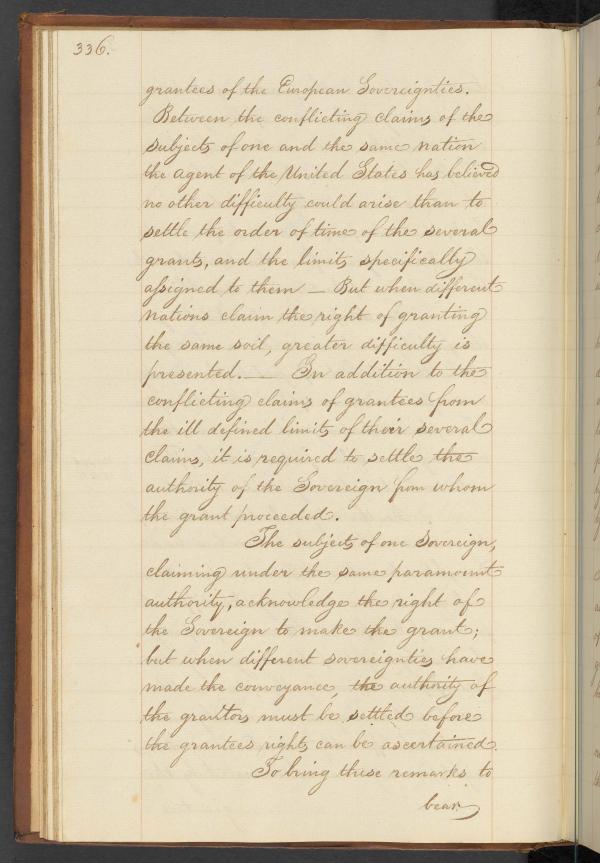 336.
grantees of the European Sovereignties.
Between the conflicting claims of the
subjects of one and the same nation
the agent of the United States has believed
no other difficulty could arise than to
settle the order of time of the several
grants, and the limits specifically
assigned to them — But when different
nations claim the right of granting
the same soil, greater difficulty is
presented. — In addition to the
conflicting claims of grantees from
the ill defined limits of their several
claims, it is required to settle the
authority of the Sovereign from whom
the grant proceeded.
The subjects of one Sovereign,
claiming under the same paramount
authority, acknowledge the right of
the Sovereign to make the grant;
but when different sovereignties have
made the conveyance, the authority of
the grantors must be settled before
the grantees rights can be ascertained.
To bring these remarks to
bear